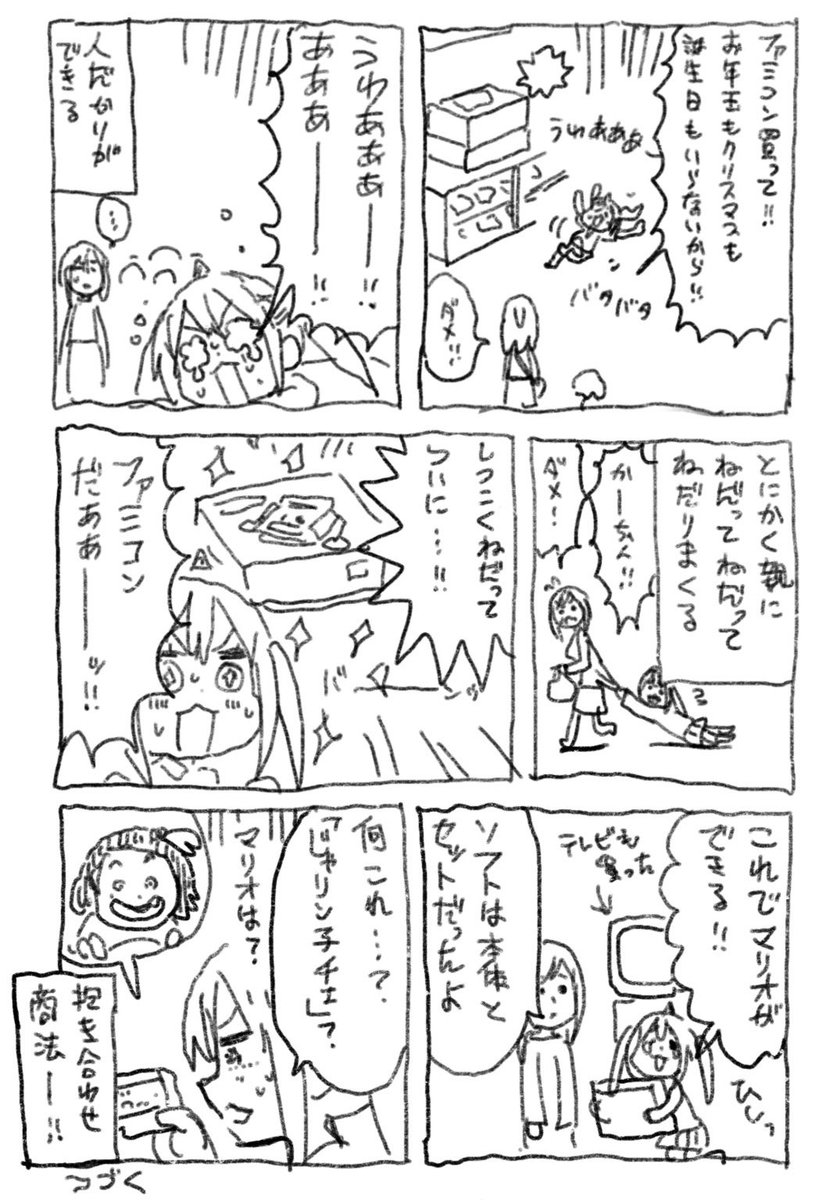 ファミコン買って!!
お年玉もクリスマスも
誕生日もいらないから!!
うわあああ
バタバタ
ダメ!!
うわあああ――!!
あああ――!!
人だかりが
できる
…
とにかく親に
ねだってねだって
ねだりまくる
かーちゃん!!
ダメ!
しつこくねだって
ついに…!!
バーンッ
ファミコン
だああーーッ!!
これでマリオが
できる!!
テレビも
買った
ひしっ
ソフトは本体と
セットだったんよ
何これ…?
「じゃリン子チエ」?
マリオは?
抱き合わせ
商法ー!!
つづく